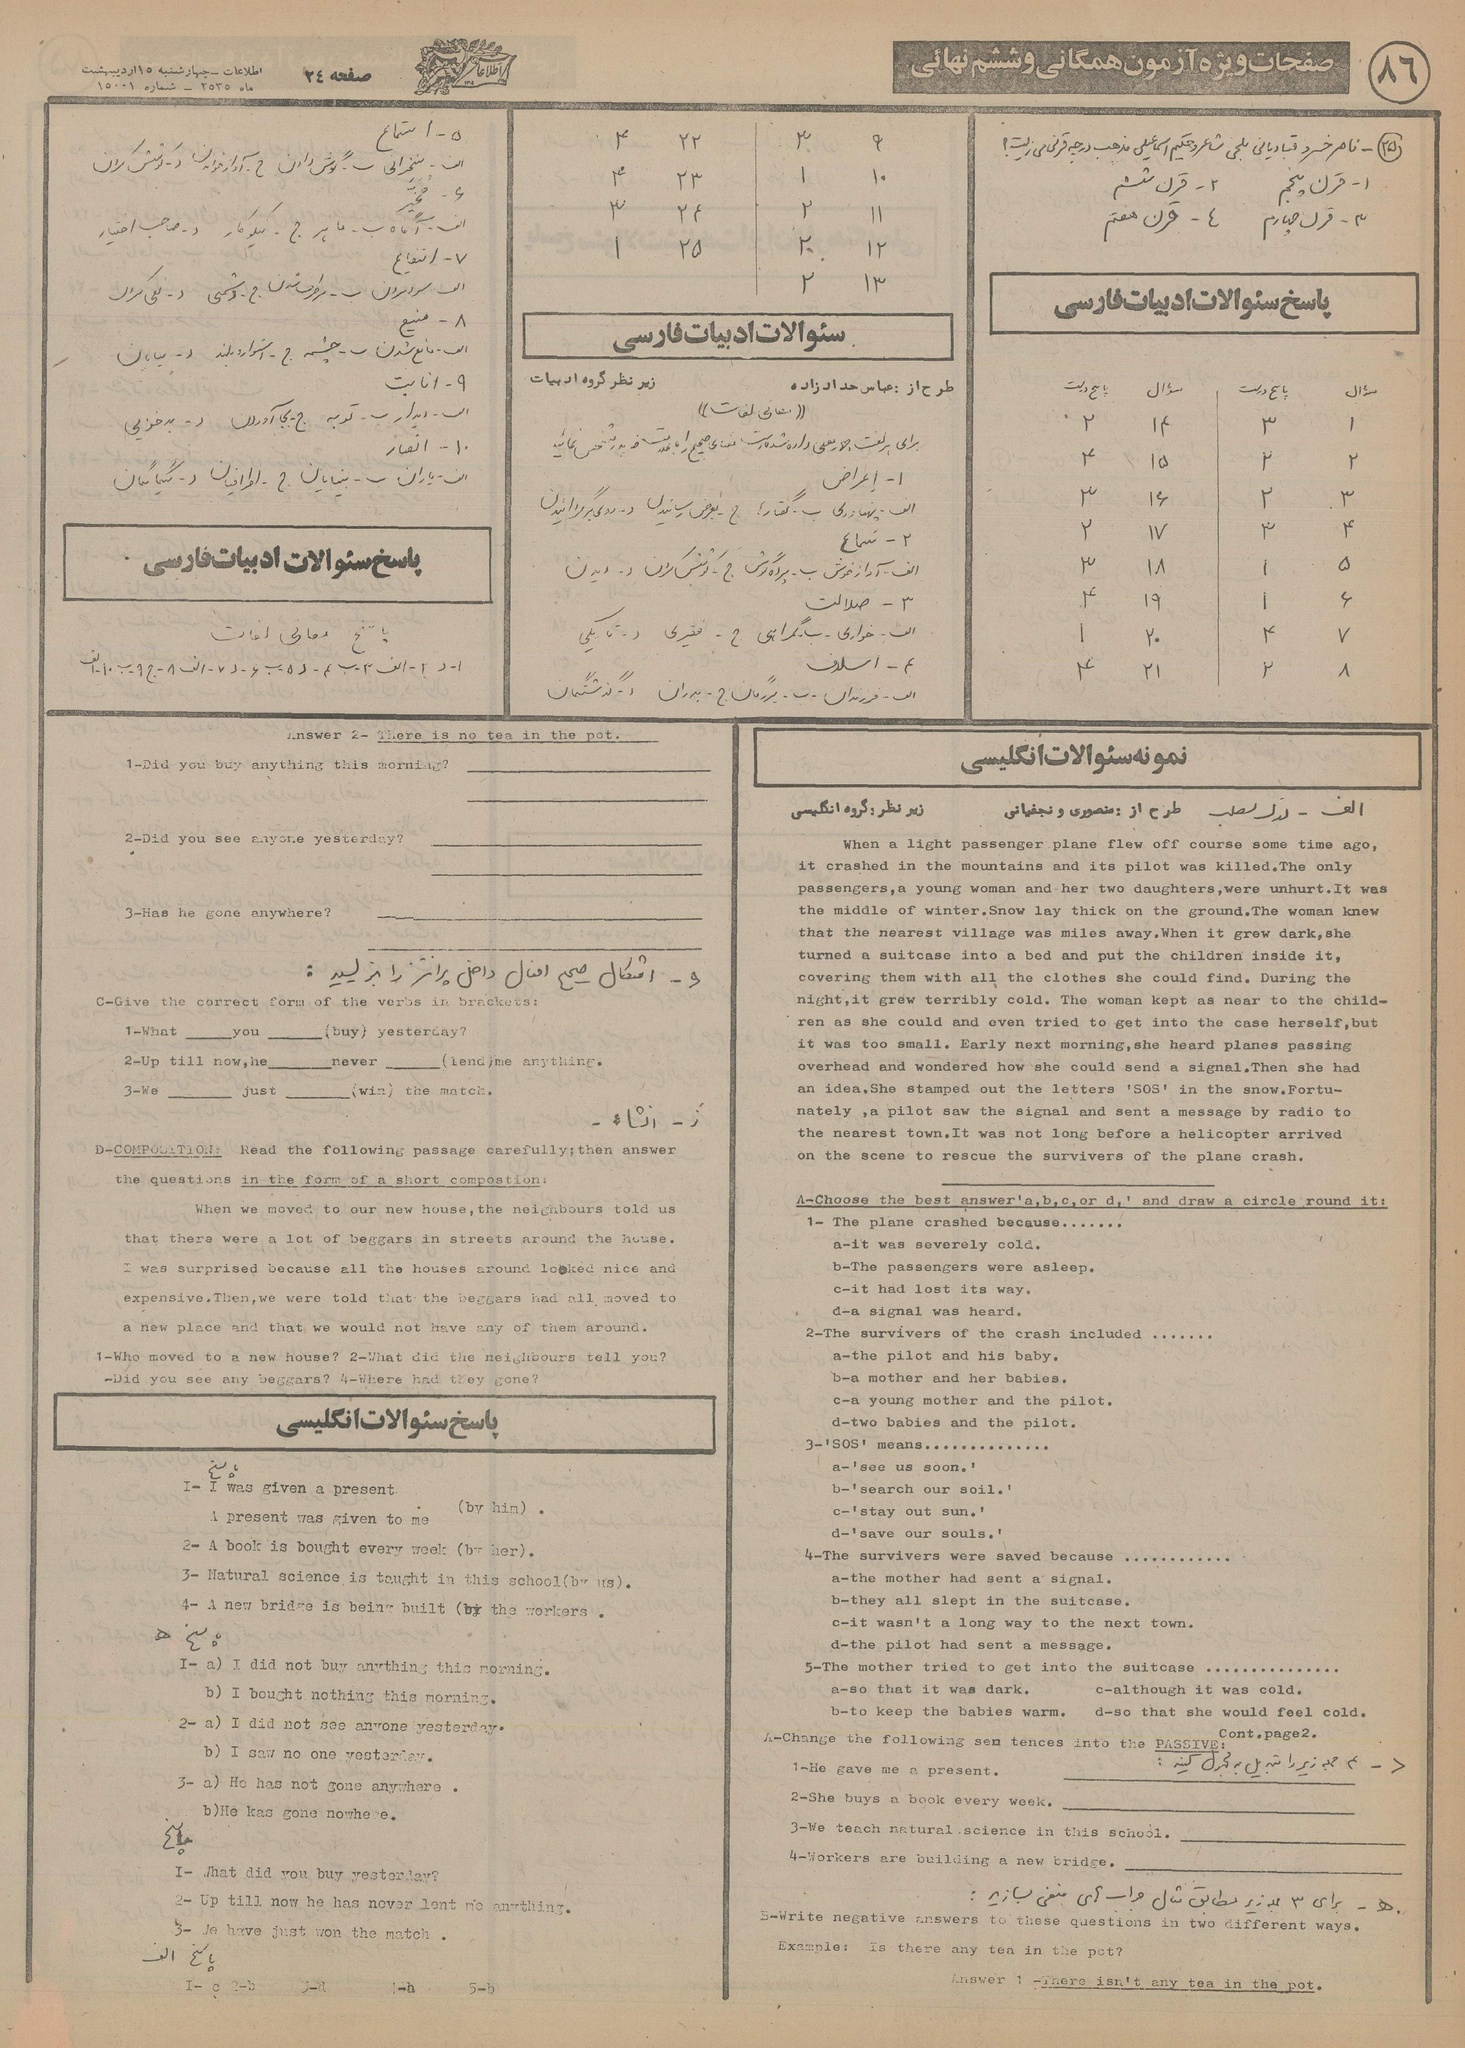 ۸۶
صفحات ویژه آزمون همگانی و ششم نهائی
صفحه ۲۴
اطلاعات ـ چهارشنبه ۱۵ اردیبهشت
ماه ۲۵۳۵ ـ شماره ۱۵۰۰۱
۲۵ - ناصر خسرو قبادیانی بلخی شاعر و حکیم اسماعیلی مذهب در چه قرنی می زیست؟
۱- قرن پنجم ۲- قرن ششم
۳- قرن چهارم ٤- قرن هفتم
پاسخ سئوالات ادبیات فارسی
سؤال پاسخ درست سؤال پاسخ درست
۱ ۳ ۱۴ ۲
۲ ۲ ۱۵ ۴
۳ ۲ ۱۶ ۳
۴ ۳ ۱۷ ۲
۵ ۱ ۱۸ ۳
۶ ۱ ۱۹ ۴
۷ ۴ ۲۰ ۱
۸ ۲ ۲۱ ۴
۹ ۳ ۲۲ ۴
۱۰ ۱ ۲۳ ۴
۱۱ ۲ ۲۴ ۳
۱۲ ۲ ۲۵ ۱
۱۳ ۲
سئوالات ادبیات فارسی
طرح از : عباس حدادزاده زیر نظر گروه ادبیات
((معانی لغات))
برای هر لغت چهار معنی داده شده است معنای صحیح را با علامت
۱- إعراض
الف- پهناوری ب- گفتار ج- بعرض رسانیدن د- روی برگردانیدن
۲- سماع
الف- آواز خوش ب- پرده گوش ج- کوشش کردن د- دیدن
۳- ضلالت
الف- خواری ب- گمراهی ج- فقیری د- تاریکی
۴- اسلاف
الف- فرزندان ب- بزرگان ج- پدران د- گذشتگان
۵- استماع
الف- سخنرانی ب- گوش دادن ج- آواز خواندن د- کوشش کردن
۶- مخیّر
الف- آگاه ب- ماهر ج- نیکوکار د- صاحب اختیار
۷- انتفاع
الف- سود بردن ب- برطرف شدن ج- دشمنی د- نفی کردن
۸- منیع
الف- مانع شدن ب- چشمه ج- استوار و بلند د- بیابان
۹- انابت
الف- دیدار ب- توبه ج- بجا آوردن د- بدخوئی
۱۰- انصار
الف- یاران ب- بینایان ج- اطرافیان د- بیگانگان
پاسخ سئوالات ادبیات فارسی
پاسخ معانی لغات
۱- د ۲- الف ۳- ب ۴- د ۵- ب ۶- د ۷- الف ۸- ج ۹- ب ۱۰- الف
نمونه سئوالات انگلیسی
الف - درک مطلب طرح از : منصوری و نجفیانی زیر نظر : گروه انگلیسی
When a light passenger plane flew off course some time ago,
it crashed in the mountains and its pilot was killed.The only
passengers,a young woman and her two daughters,were unhurt.It was
the middle of winter.Snow lay thick on the ground.The woman knew
that the nearest village was miles away.When it grew dark,she
turned a suitcase into a bed and put the children inside it,
covering them with all the clothes she could find. During the
night,it grew terribly cold. The woman kept as near to the child-
ren as she could and even tried to get into the case herself,but
it was too small. Early next morning,she heard planes passing
overhead and wondered how she could send a signal.Then she had
an idea.She stamped out the letters 'SOS' in the snow.Fortu-
nately ,a pilot saw the signal and sent a message by radio to
the nearest town.It was not long before a helicopter arrived
on the scene to rescue the survivers of the plane crash.
A-Choose the best answer'a,b,c,or d,' and draw a circle round it:
1- The plane crashed because.......
a-it was severely cold.
b-The passengers were asleep.
c-it had lost its way.
d-a signal was heard.
2-The survivers of the crash included .......
a-the pilot and his baby.
b-a mother and her babies.
c-a young mother and the pilot.
d-two babies and the pilot.
3-'SOS' means..............
a-'see us soon.'
b-'search our soil.'
c-'stay out sun.'
d-'save our souls.'
4-The survivers were saved because ............
a-the mother had sent a signal.
b-they all slept in the suitcase.
c-it wasn't a long way to the next town.
d-the pilot had sent a message.
5-The mother tried to get into the suitcase ...............
a-so that it was dark. c-although it was cold.
b-to keep the babies warm. d-so that she would feel cold.
Cont.page2.
A-Change the following sen tences into the PASSIVE:
د - ۴ جمله زیر را تبدیل به مجهول کنید :
1-He gave me a present.
2-She buys a book every week.
3-We teach natural science in this school.
4-Workers are building a new bridge.
ه - برای ۳ جمله زیر مطابق مثال جواب های منفی بسازید :
B-Write negative answers to these questions in two different ways.
Example: Is there any tea in the pot?
Answer 1 -There isn't any tea in the pot.
Answer 2- There is no tea in the pot.
1-Did you buy anything this morning?
2-Did you see anyone yesterday?
3-Has he gone anywhere?
و - اشکال صحیح افعال داخل پرانتز را بنویسید :
C-Give the correct form of the verbs in brackets:
1-What ____you ____(buy) yesterday?
2-Up till now,he_____never ____(lend)me anything.
3-We _____ just _____(win) the match.
ز - انشاء -
D-COMPOSITION: Read the following passage carefully;then answer
the questions in the form of a short compostion:
When we moved to our new house,the neighbours told us
that there were a lot of beggars in streets around the house.
I was surprised because all the houses around looked nice and
expensive.Then,we were told that the beggars had all moved to
a new place and that we would not have any of them around.
1-Who moved to a new house? 2-What did the neighbours tell you?
-Did you see any beggars? 4-Where had they gone?
پاسخ سئوالات انگلیسی
پاسخ
I- I was given a present
(by him) .
A present was given to me
2- A book is bought every week (by her).
3- Natural science is taught in this school(by us).
4- A new bridge is being built (by the workers .
پاسخ ه
I- a) I did not buy anything this morning.
b) I bought nothing this morning.
2- a) I did not see anyone yesterday.
b) I saw no one yesterday.
3- a) He has not gone anywhere .
b)He kas gone nowhere.
پاسخ
I- What did you buy yesterday?
2- Up till now he has never lent me anything.
3- We have just won the match .
پاسخ الف
I- c 2-b 3-d 4-a 5-b